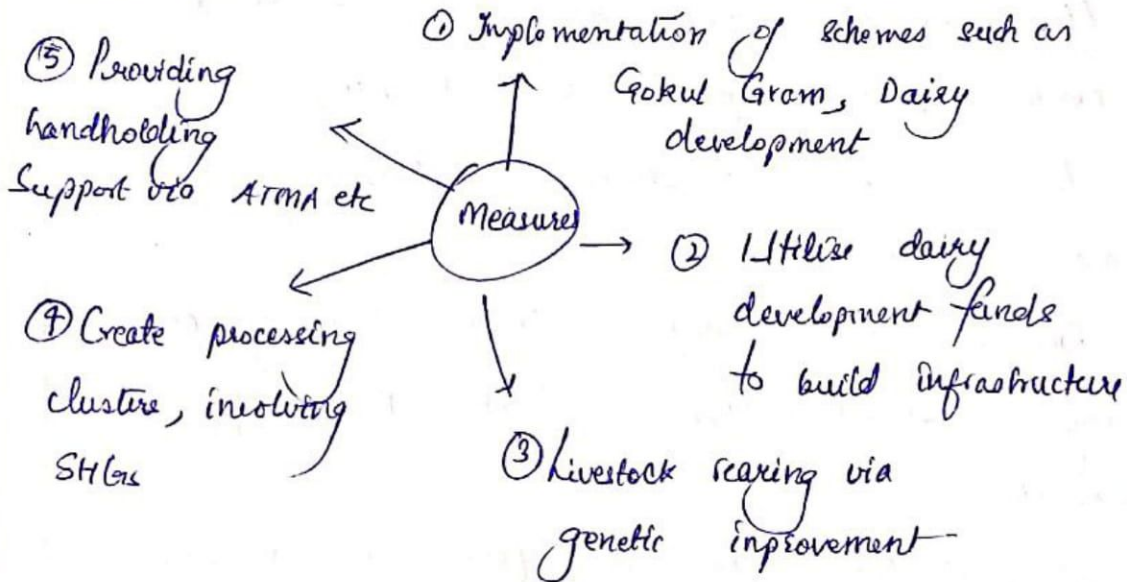 ① Implementation of schemes such as
Gokul Gram, Dairy
development
② Utilise dairy
development funds
to build infrastructure
③ Livestock rearing via
genetic inprovement
④ Create processing
clusters, involving
SHGs
⑤ Providing
handholding
Support via ATMA etc
Measures